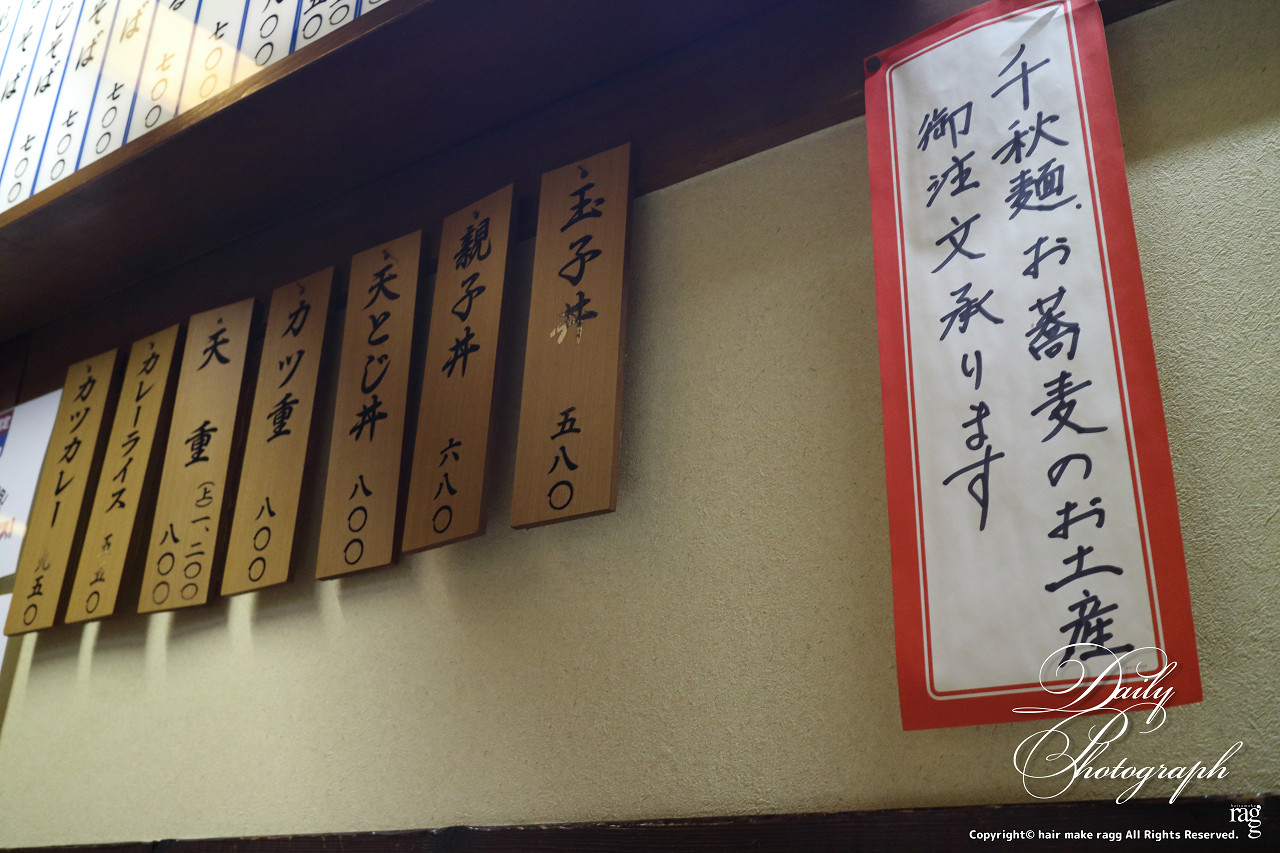 千秋麺、お蕎麦のお土産
御注文承ります
玉子丼 五八〇
親子丼 六八〇
天とじ丼 八〇〇
カツ重 八〇〇
天重 (上)一、二〇〇
八〇〇
カレーライス 五五〇
カツカレー 九五〇
そば 七〇〇
そば 七〇〇
じそば 七〇〇
そば 七〇〇
Daily
Photograph
rag
Copyright© hair make ragg All Rights Reserved.